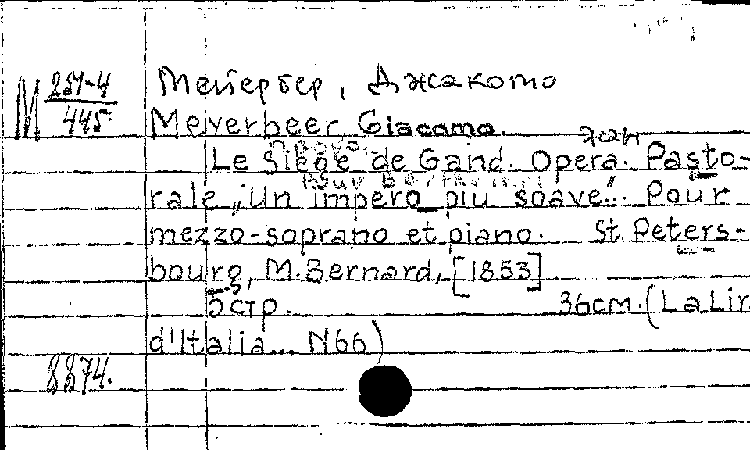 М 251-4
445
Мейербер, Джакомо
Meyerbeer, Giacomo.
Le Siège de Gand. Opera. Pasto-
rale „Un impero più soave“. Pour
mezzo-soprano et piano. St. Peters-
bourg, M. Bernard, [1853]
5 стр. 36 см. (La Lir.
d'Italia... N66)
8874.